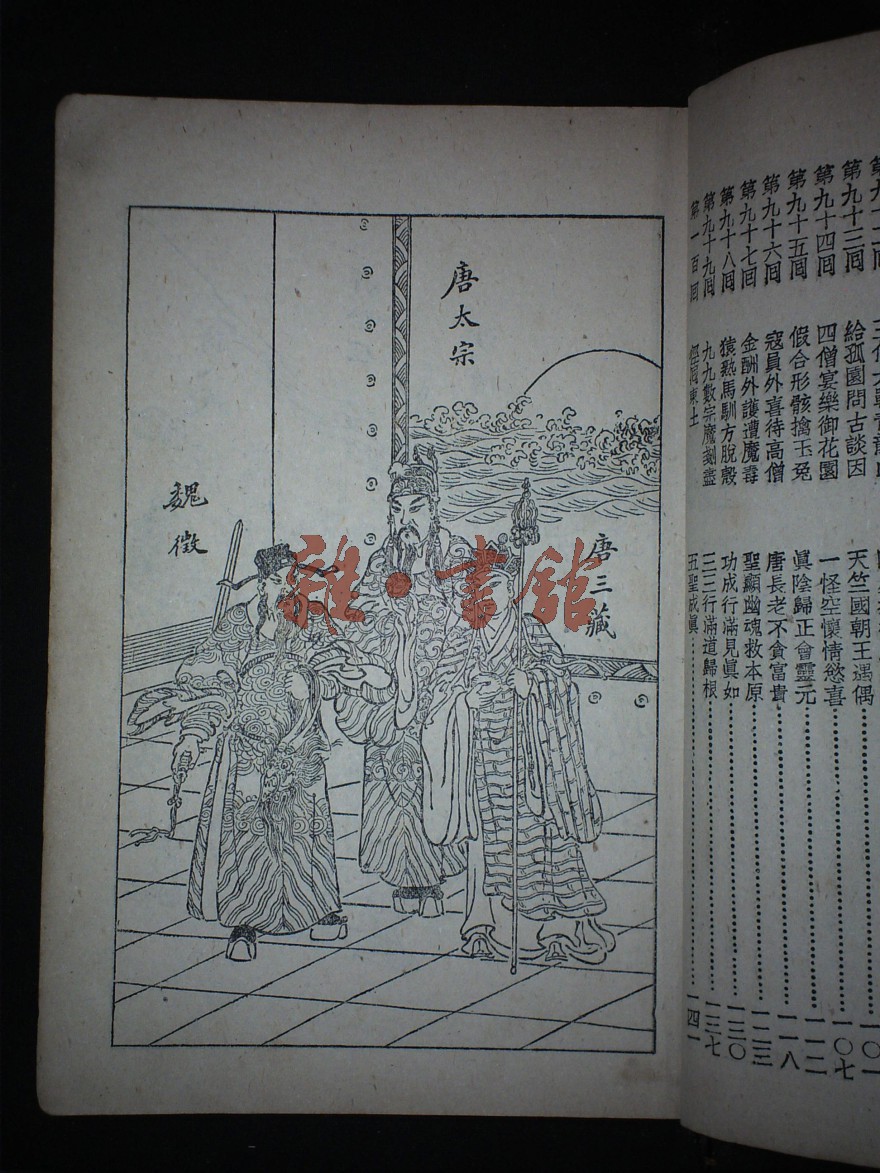 唐太宗
魏徵
唐三藏
雅·書館
第九十三回 給孤園問古談因 天竺國朝王遇偶 一〇七
第九十四回 四僧宴樂御花園 一怪空懷情慾喜 一一二
第九十五回 假合形骸擒玉兔 眞陰歸正會靈元 一一八
第九十六回 寇員外喜待高僧 唐長老不貪富貴 一二三
第九十七回 金酬外護遭魔毒 聖顯幽魂救本原
第九十八回 猿熟馬馴方脫殼 功成行滿見眞如 一三〇
第九十九回 九九數完魔剗盡 三三行滿道歸根 一三七
第一百回 徑回東土 五聖成眞 一四一